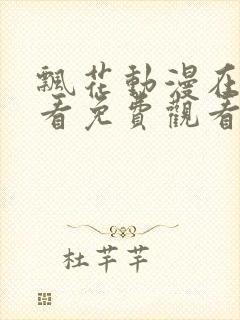 飄花動漫在
看免費觀看
杜芊芊